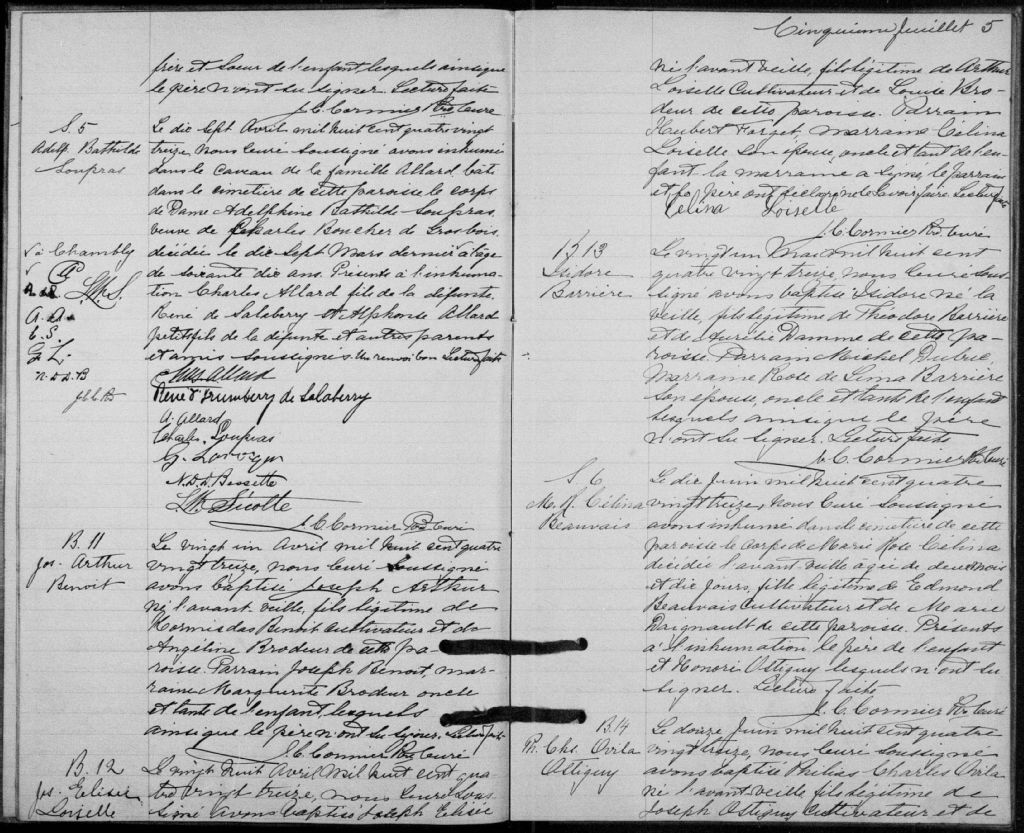 frère et Soeur de l'enfant, lesquels ainsi que
le père n'ont su signer. Lecture faite
J. C. Cormier Ptre Curé
S. 5
Adelp. Bathilde
Soupras
Le dix sept Avril mil huit cent quatre vingt
treize, Nous Curé soussigné avons inhumé
dans le caveau de la famille Allard, bâti
dans le cimetière de cette paroisse le corps
de Dame Adelphine Bathilde Soupras
veuve de Charles Boucher de Grosbois
à Chambly
décédée le dix Sept Mars dernier à l'age
de soixante dix ans. Présents à l'inhuma-
tion Charles Allard fils de la défunte
René de Salaberry et Alphonse Allard
A. A.
C. S.
G. L.
N. D. D. B
petitsfils de la défunte et autres parents
et amis soussignés. Un renvoi bon Lecture faite
Chs Allard
René d'Irumberry de Salaberry
A. Allard
Charles Soupras
G.
N. D. D. Bessette
Sicotte
J. C. Cormier Ptre Curé
B. 11
Jos. Arthur
Benoit
Le vingt un Avril mil huit cent quatre
vingt treize, nous Curé Soussigné
avons baptisé Joseph Arthur
né l'avant veille, fils légitime de
Hormisdas Benoit Cultivateur et de
Angéline Brodeur de cette pa-
roisse. Parrain Joseph Benoit, mar-
raine Marguerite Brodeur oncle
et tante de l'enfant, lesquels
ainsi que le père n'ont su signer. Lecture faite
J. C. Cormier Ptre Curé
B. 12
Jos. Elisée
Loiselle
Le vingt huit Avril Mil huit cent qua
tre vingt treize, nous Curé Sous-
signé Avons baptisé Joseph Elisée
Cinquième feuillet 5
né l'avant veille, fils légitime de Arthur
Loiselle Cultivateur et de Louise Bro-
deur de cette paroisse. Parrain
Hubert Forget, marraine Célina
Loiselle son épouse, oncle et tante de l'en-
fant la marraine a signé, le parrain
et le père ont déclaré ne savoir faire. Lecture faite
Célina Loiselle
J. C. Cormier Ptre Curé
B 13
Isidore
Barrière
Le vingt un Mai mil huit cent
quatre vingt treize, nous Curé Sous
signé avons baptisé Isidore né la
veille, fils légitime de Théodore Barrière
et de Aurélie Damme de cette pa-
roisse. Parrain Michel Dubuc,
Marraine Rose de Lima Barrière
son épouse, oncle et tante de l'enfant
lesquels ainsi que le père
n'ont su signer. Lecture faite
J. C. Cormier Ptre Curé
S. 6
M. R. Célina
Beauvais
Le dix Juin mil huit cent quatre
vingt treize, Nous Curé Soussigné
avons inhumé dans le cimetière de cette
paroisse le corps de Marie Rose Célina
décédée l'avant veille agée de deux mois
et dix jours, fille légitime de Edmond
Beauvais Cultivateur et de Marie
Daignault de cette paroisse. Présents
à l'inhumation, le père de l'enfant
et Honoré Ostiguy lesquels n'ont su
signer. Lecture faite
J. C. Cormier Ptre Curé
B. 14
Ph. Chs. Ovila
Ostiguy
Le douze Juin mil huit cent quatre
vingt treize, nous Curé Soussigné
avons baptisé Philias Charles Ovila
né l'avant veille fils légitime de
Joseph Ostiguy Cultivateur et de